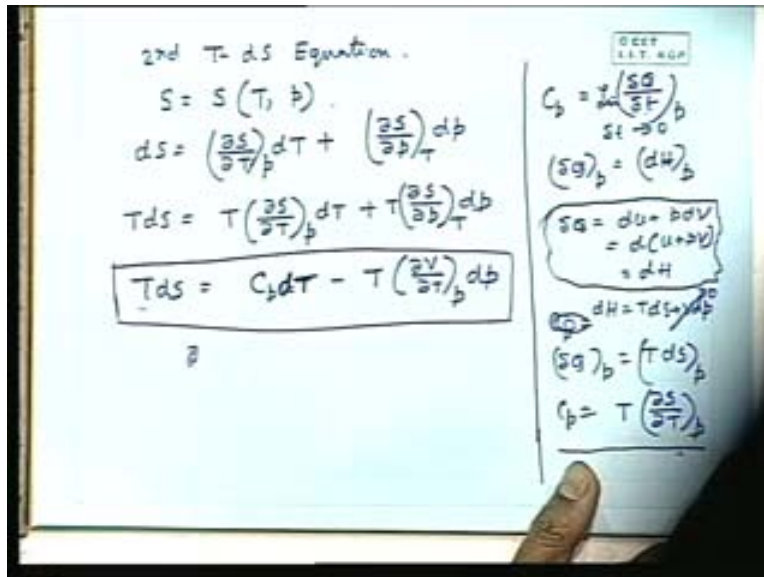 2nd T-dS Equation.
S = S (T, p).
dS = (∂S/∂T)_p dT + (∂S/∂p)_T dp
TdS = T (∂S/∂T)_p dT + T (∂S/∂p)_T dp
TdS = C_p dT - T (∂V/∂T)_p dp
∂
I.I.T. KGP
C_p = (δQ/δt)_p
δt → 0
(δQ)_p = (dH)_p
δQ = dU + pdV
= d(U+pV)
= dH
dH = TdS + Vdp 0
(δQ)_p = (TdS)_p
C_p = T (∂S/∂T)_p